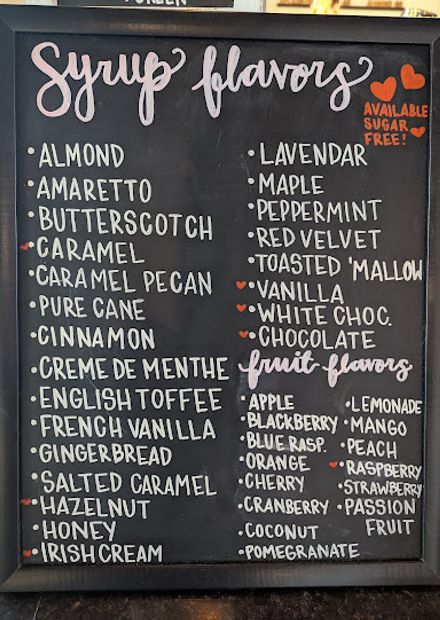 Syrup flavors
AVAILABLE
SUGAR
FREE!
•ALMOND
•AMARETTO
•BUTTERSCOTCH
•CARAMEL
•CARAMEL PECAN
•PURE CANE
•CINNAMON
•CREME DE MENTHE
•ENGLISH TOFFEE
•FRENCH VANILLA
•GINGERBREAD
•SALTED CARAMEL
•HAZELNUT
•HONEY
•IRISH CREAM
•LAVENDAR
•MAPLE
•PEPPERMINT
•RED VELVET
•TOASTED 'MALLOW
•VANILLA
•WHITE CHOC.
•CHOCOLATE
fruit flavors
•APPLE
•BLACKBERRY
•BLUE RASP.
•ORANGE
•CHERRY
•CRANBERRY
•COCONUT
•POMEGRANATE
•LEMONADE
•MANGO
•PEACH
•RASPBERRY
•STRAWBERRY
•PASSION
FRUIT